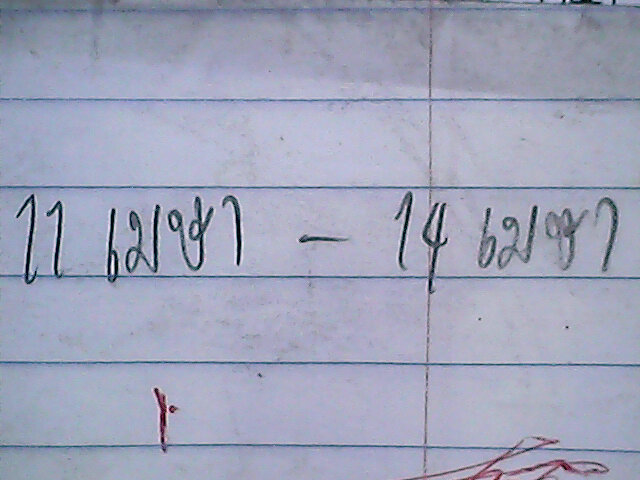 11 เมษา - 14 เมษา